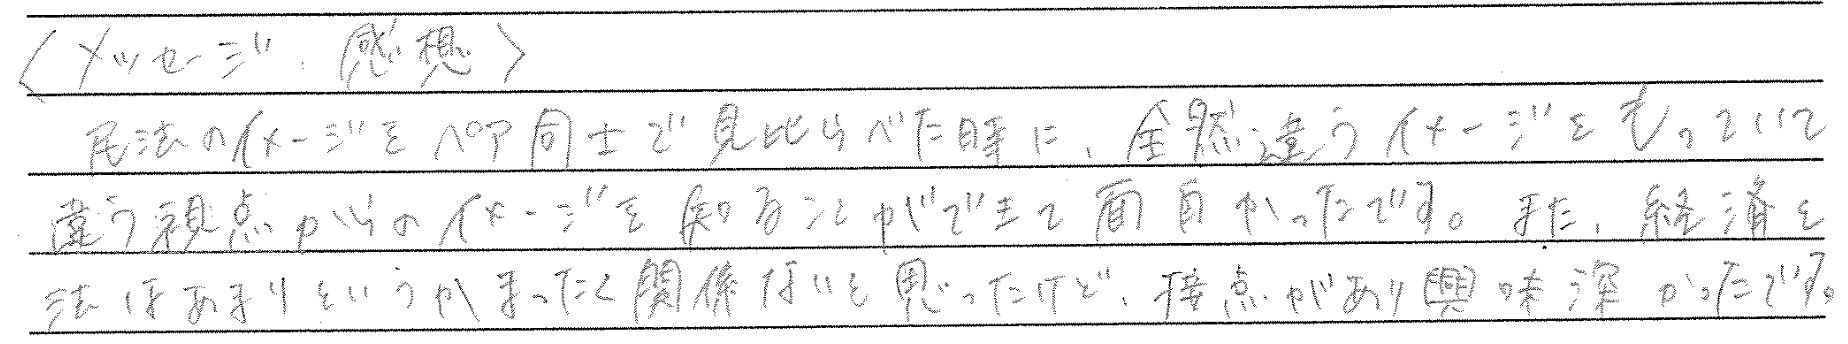 〈メッセージ・感想〉
民法のイメージをペア同士で見比らべた時に、全然違うイメージをもっていて
違う視点からのイメージを知ることができて面白かったです。また、経済と
法はあまりというかまったく関係ないと思ったけど、接点があり興味深かったです。